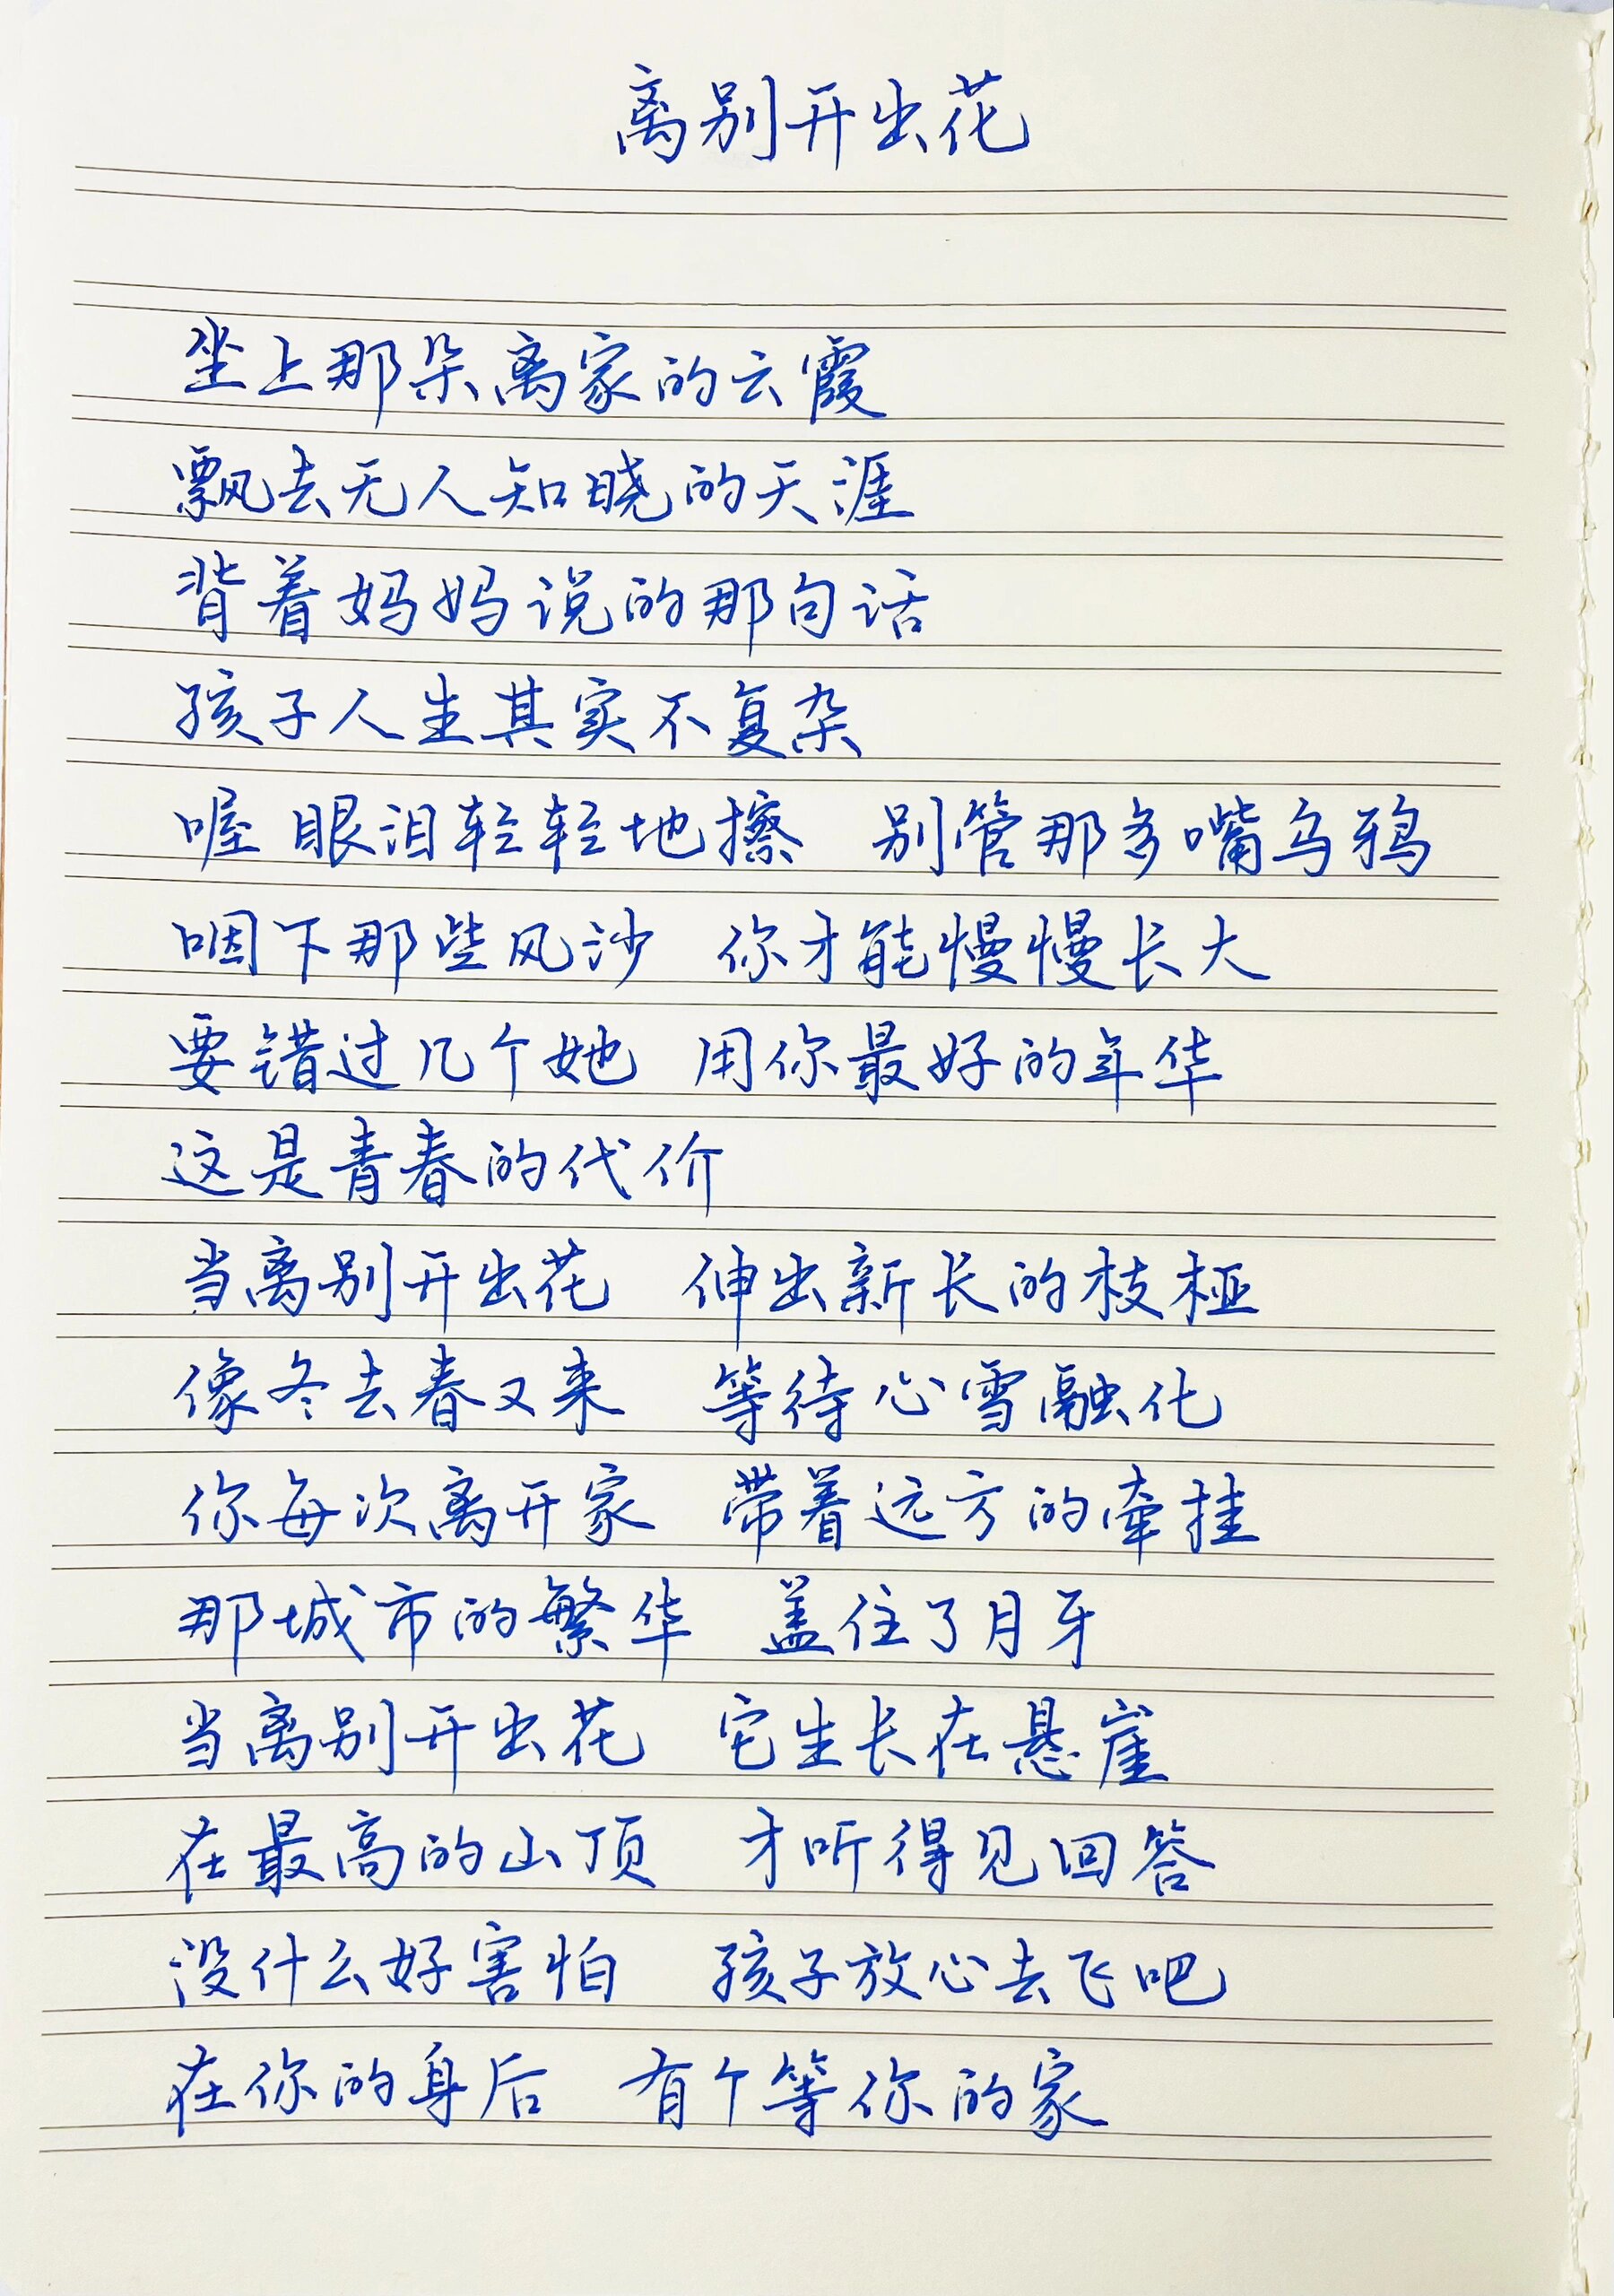 离别开出花
坐上那朵离家的云霞
飘去无人知晓的天涯
背着妈妈说的那句话
孩子人生其实不复杂
喔 眼泪轻轻地擦 别管那多嘴乌鸦
咽下那些风沙 你才能慢慢长大
要错过几个她 用你最好的年华
这是青春的代价
当离别开出花 伸出新长的枝桠
像冬去春又来 等待心雪融化
你每次离开家 带着远方的牵挂
那城市的繁华 盖住了月牙
当离别开出花 它生长在悬崖
在最高的山顶 才听得见回答
没什么好害怕 孩子放心去飞吧
在你的身后 有个等你的家